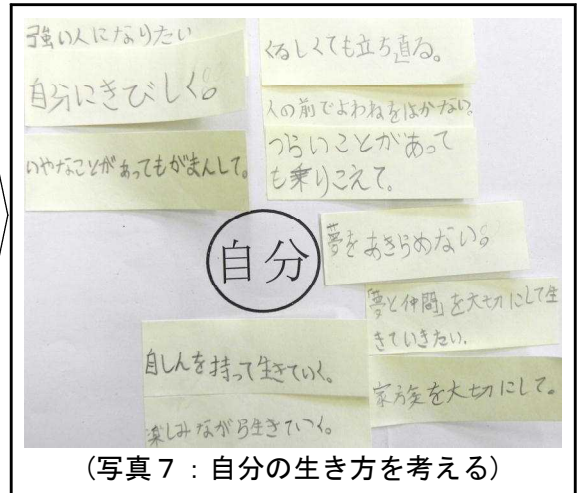 強い人になりたい
自分にきびしく。
いやなことがあってもがまんして。
くるしくても立ち直る。
人の前でよわねをはかない。
つらいことがあって
も乗りこえて。
自分
夢をあきらめない。
「夢と仲間」を大切にして生
きていきたい.
家族を大切にして。
自しんを持って生きていく。
楽しみながら生きていく。
(写真7：自分の生き方を考える)